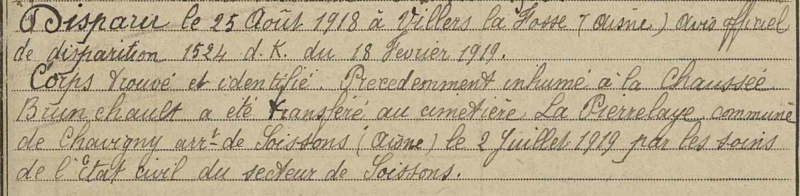 Disparu le 25 Août 1918 à Villers la Fosse (Aisne) avis officiel
de disparition 1524 d.K. du 18 Fevrier 1919.
Corps trouvé et identifié. Precedemment inhumé à la Chaussée
Brunehault a été transféré au cimetière La Pierrelaye, commune
de Chavigny arrt de Soissons (Aisne) le 2 Juillet 1919 par les soins
de l'Etat civil du secteur de Soissons.